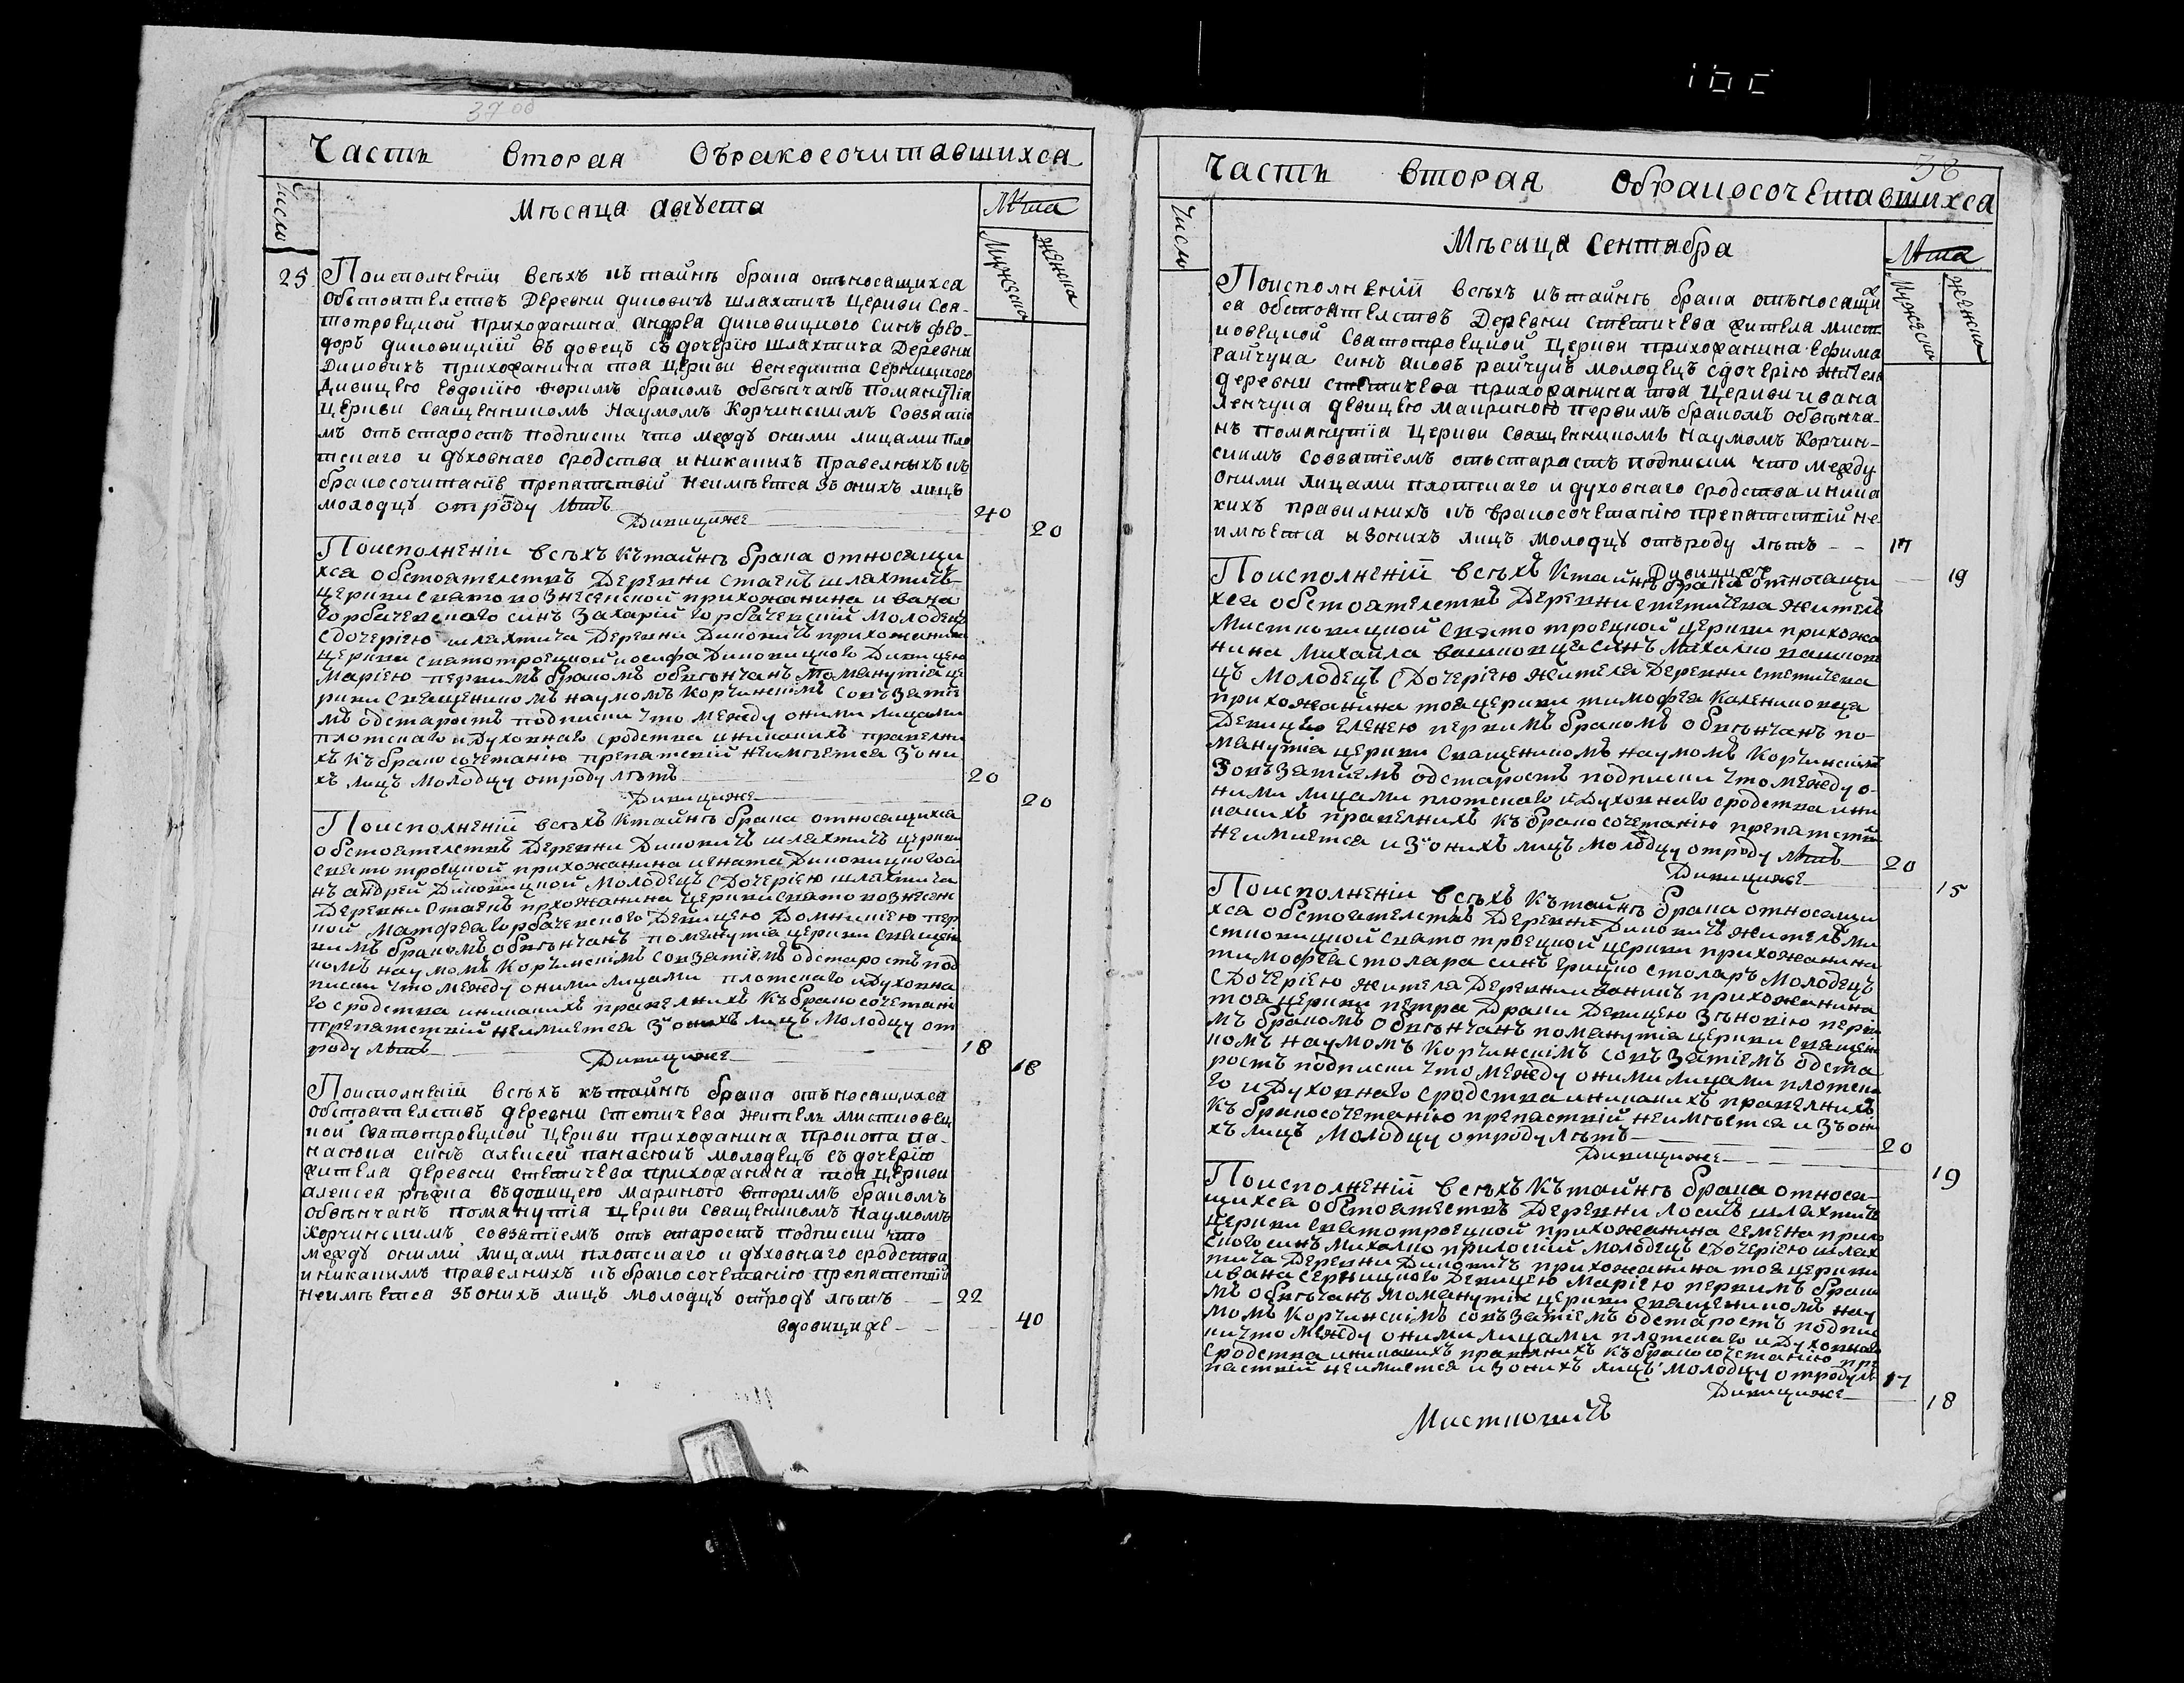 37 об
Часть вторая Обракосочитавшихся
Число
Мѣсяца августа
Лѣта
Мужеска
женска
25
Поисполненіи всѣхъ къ тайнѣ брака отъносящихся
обстоятелствъ деревни диковичъ шляхтичъ Церкви Свя-
тотроецкой прихожанина андрея диковицкого синъ фео-
доръ диковицкій въдовецъ съ дочерію шляхтича деревни
диковичъ прихожанина тоя Церкви венедикта Серницкого
дивицею Евдокіею вторимъ бракомъ обвѣнчанъ Помянутія
Церкви Священникомъ Наумомъ Корчинскимъ Совзятіе
мъ отъ старостъ подписки что между оними лицами пло
тскаго и духовнаго сродства и никакихъ правелныхъ къ
бракосочитанію препятствій неимѣется зъ онихъ лицъ
молодцу отроду лѣтъ
40
Дивицижѣ
20
Поисполненіи всѣхъ Къ тайнѣ брака относящи
хся обстоятелствъ Деревни Ставъ шляхтичъ
церкви Свято вознесенской прихожанина ивана
Горбачевского синъ Захарій Горбачевскій Молодецъ
Сдочеріею шляхтича Деревни Диковичъ прихожанина
церкви Святотроецкой иосифа Диковицкого Дивицею
Маріею первимъ бракомъ обвѣнчанъ Томянутія це
ркви Священикомъ наумомъ Корчинскімъ Совъзятіе
мъ одстаростъ подписки что между оними лицами
плотскаго и Духовнаго сродства иникакихъ правелни
хъ Къ бракосочетанію препятствій неимѣется Зъони
хъ лицъ Молодцу отроду лѣтъ
20
Дивицижѣ
20
Поисполненіи всѣхъ Ктайнѣ брака относящихся
обстоятелствъ Деревни Диковичъ шляхтичъ церкви
Святотроецкой прихожанина игната Диковицкого си
нъ андрей Диковицкой Молодецъ СДочеріею шляхтича
Деревни Ставъ прихожанина церкви Свято вознесенс
кой Матфея Горбачевского Девицею Домникіею пер
вимъ бракомъ обвѣнчанъ помянутія церкви Священи
комъ наумомъ Корчинскімъ Совзятіемъ одстаростъ под
писки что между оними лицами плотскаго и Духовна
го сродства иникакихъ правелнихъ Къ бракосочетані
препятствій неимиется Зъонихъ лицъ Молодцу от
роду лѣтъ
18
Дивицижѣ
18
Поисполненій всѣхъ къ тайнѣ брака отъносящихся
обстоятелствъ деревни стетичева жителъ мистковец
кой Святотроецкой Церкви прихожанина прокопа па-
насюка синъ алексей панасюкъ молодецъ съ дочерію
жителя деревни стетичева прихожанина тоя Церкви
алексея въдовицею мариною вторимъ бракомъ
обвѣнчанъ помянутія Церкви Священикомъ Наумомъ
Корчинскимъ совзятіемъ отъ старостъ подписки что
между оними лицами плотскаго и духовнаго сродства
и никакимъ правелнихъ къ бракосочетанію препятствій
неимѣется зъонихъ лицъ молодцу отроду лѣтъ
22
вдовицижѣ
40
38
Часть вторая Обракосочетавшихся
Число
Мѣсяца Сентября
Лѣта
Мужеска
женска
Поисполненій всѣхъ къ тайнѣ брака отъносящих
ся обстоятелствъ Деревни Стетичева жителя мист
ковецкой Святотроецкой Церкви прихожанина Ефима
райчука синъ яковъ райчукъ молодецъ сдочерію жителя
деревни стетичева прихожанина тоя Церкви ивана
девицею Мавриною первимъ бракомъ обвѣнча-
нъ помянутія Церкви Священникомъ Наумомъ Корчин-
скимъ совзятіемъ отъстаростъ подписки что между
оними лицами плотскаго и духовнаго сродства и ника
кихъ правилнихъ къ бракосочетанію препятствій не
имѣется изонихъ лицъ молодцу отъроду лѣтъ
17
Дивицижѣ
19
Поисполненій всѣхъ Ктайнѣ брака относящи
хся обстоятелствъ Деревни Стетичева жителъ
Мистковицкой Свято троецкой церкви прихожа
нина Михайла синъ Михалко
цъ Молодецъ СДочеріею жителя Деревни Стетичева
прихожанина тоя церкви тимофея
Девицею Еленею первимъ бракомъ обвѣнчанъ по-
мянутія церкви Священикомъ наумомъ Корчинскімъ
Зовъзятиемъ одстаростъ подписки что между о-
ними лицами плотскаго и Духовнаго сродства ини
какихъ правелнихъ Къ бракосочетанію препятстви
неимиется и Зъонихъ лицъ Молодцу отроду лѣтъ
20
Дивицижѣ
15
Поисполненіи всѣхъ Къ тайнѣ брака относящи
хся обстоятелствъ Деревни Диковичъ жителъ ми
стковицкой Свято троецкой церкви прихожанина
тимофея столяра синъ грицко столяръ Молодецъ
СДочеріею жителя Деревни прихожанина
тоя церкви петра Драки Девицею Зѣновію перви
мъ бракомъ обвѣнчанъ помянутія церкви Священи
комъ наумомъ Корчинскімъ Совъзятіемъ одста
ростъ подписки что между оними лицами плотска
го и Духовнаго сродства иникакихъ правелнихъ
Къ бракосочетанію препяствій неимѣется и Зъони
хъ лицъ Молодцу отроду лѣтъ
20
Дивицижѣ
19
Поисполненій всѣхъ Къ тайнѣ брака относя-
щихся обстоятелствъ Деревни лосичъ шляхтичъ
церкви Святотроецкой прихожанина Семена
синъ Михалко Молодецъ СДочеріею шлях
тича Деревни Диковичъ прихожанина тоя церкви
ивана Серницкого Девицею Маріею первимъ брако
мъ обвѣнчанъ помянутія церкви Священикомъ нау
момъ Корчинскімъ Совъзятіемъ одстаростъ подпис
ки что между оними лицами плотскаго и Духовнаго
сродства иникакихъ правелнихъ Къ бракосочетанію пре
пяствій неимиется и Зонихъ лицъ Молодцу отроду лѣ
17
Дивицижѣ
18
Мистковичъ